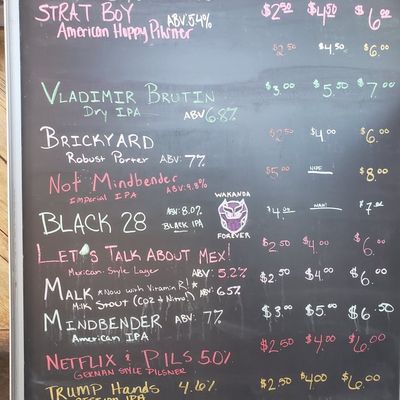 STRAT BOY ABV: 5.4% $2.50 $4.50 $6.00
American Hoppy Pilsner
$2.50 $4.50 $6.00
VLADIMIR BRUTIN $3.00 $5.50 $7.00
Dry IPA ABV 6.8%
BRICKYARD $2.50 $4.00 $6.00
Robust Porter ABV: 7%
Not Mindbender ABV: 9.8% $5.00 NOPE $8.00
Imperial IPA
WAKANDA
BLACK 28 ABV: 8.0% $4.00 NAH! $7.00
BLACK IPA
FOREVER
LET'S TALK ABOUT MEX! $2.50 $4.00 $6.00
Mexican-Style Lager ABV: 5.2%
MALK *Now with Vitamin R!* $2.50 $4.00 $6.00
Milk Stout (CO2 & Nitro) ABV: 6.5%
MINDBENDER ABV: 7% $3.00 $5.00 $6.50
American IPA
NETFLIX & PILS 5.0% $2.50 $4.00 $6.00
GERMAN STYLE PILSNER
TRUMP Hands 4.6% $2.50 $4.00 $6.00
SESSION IPA